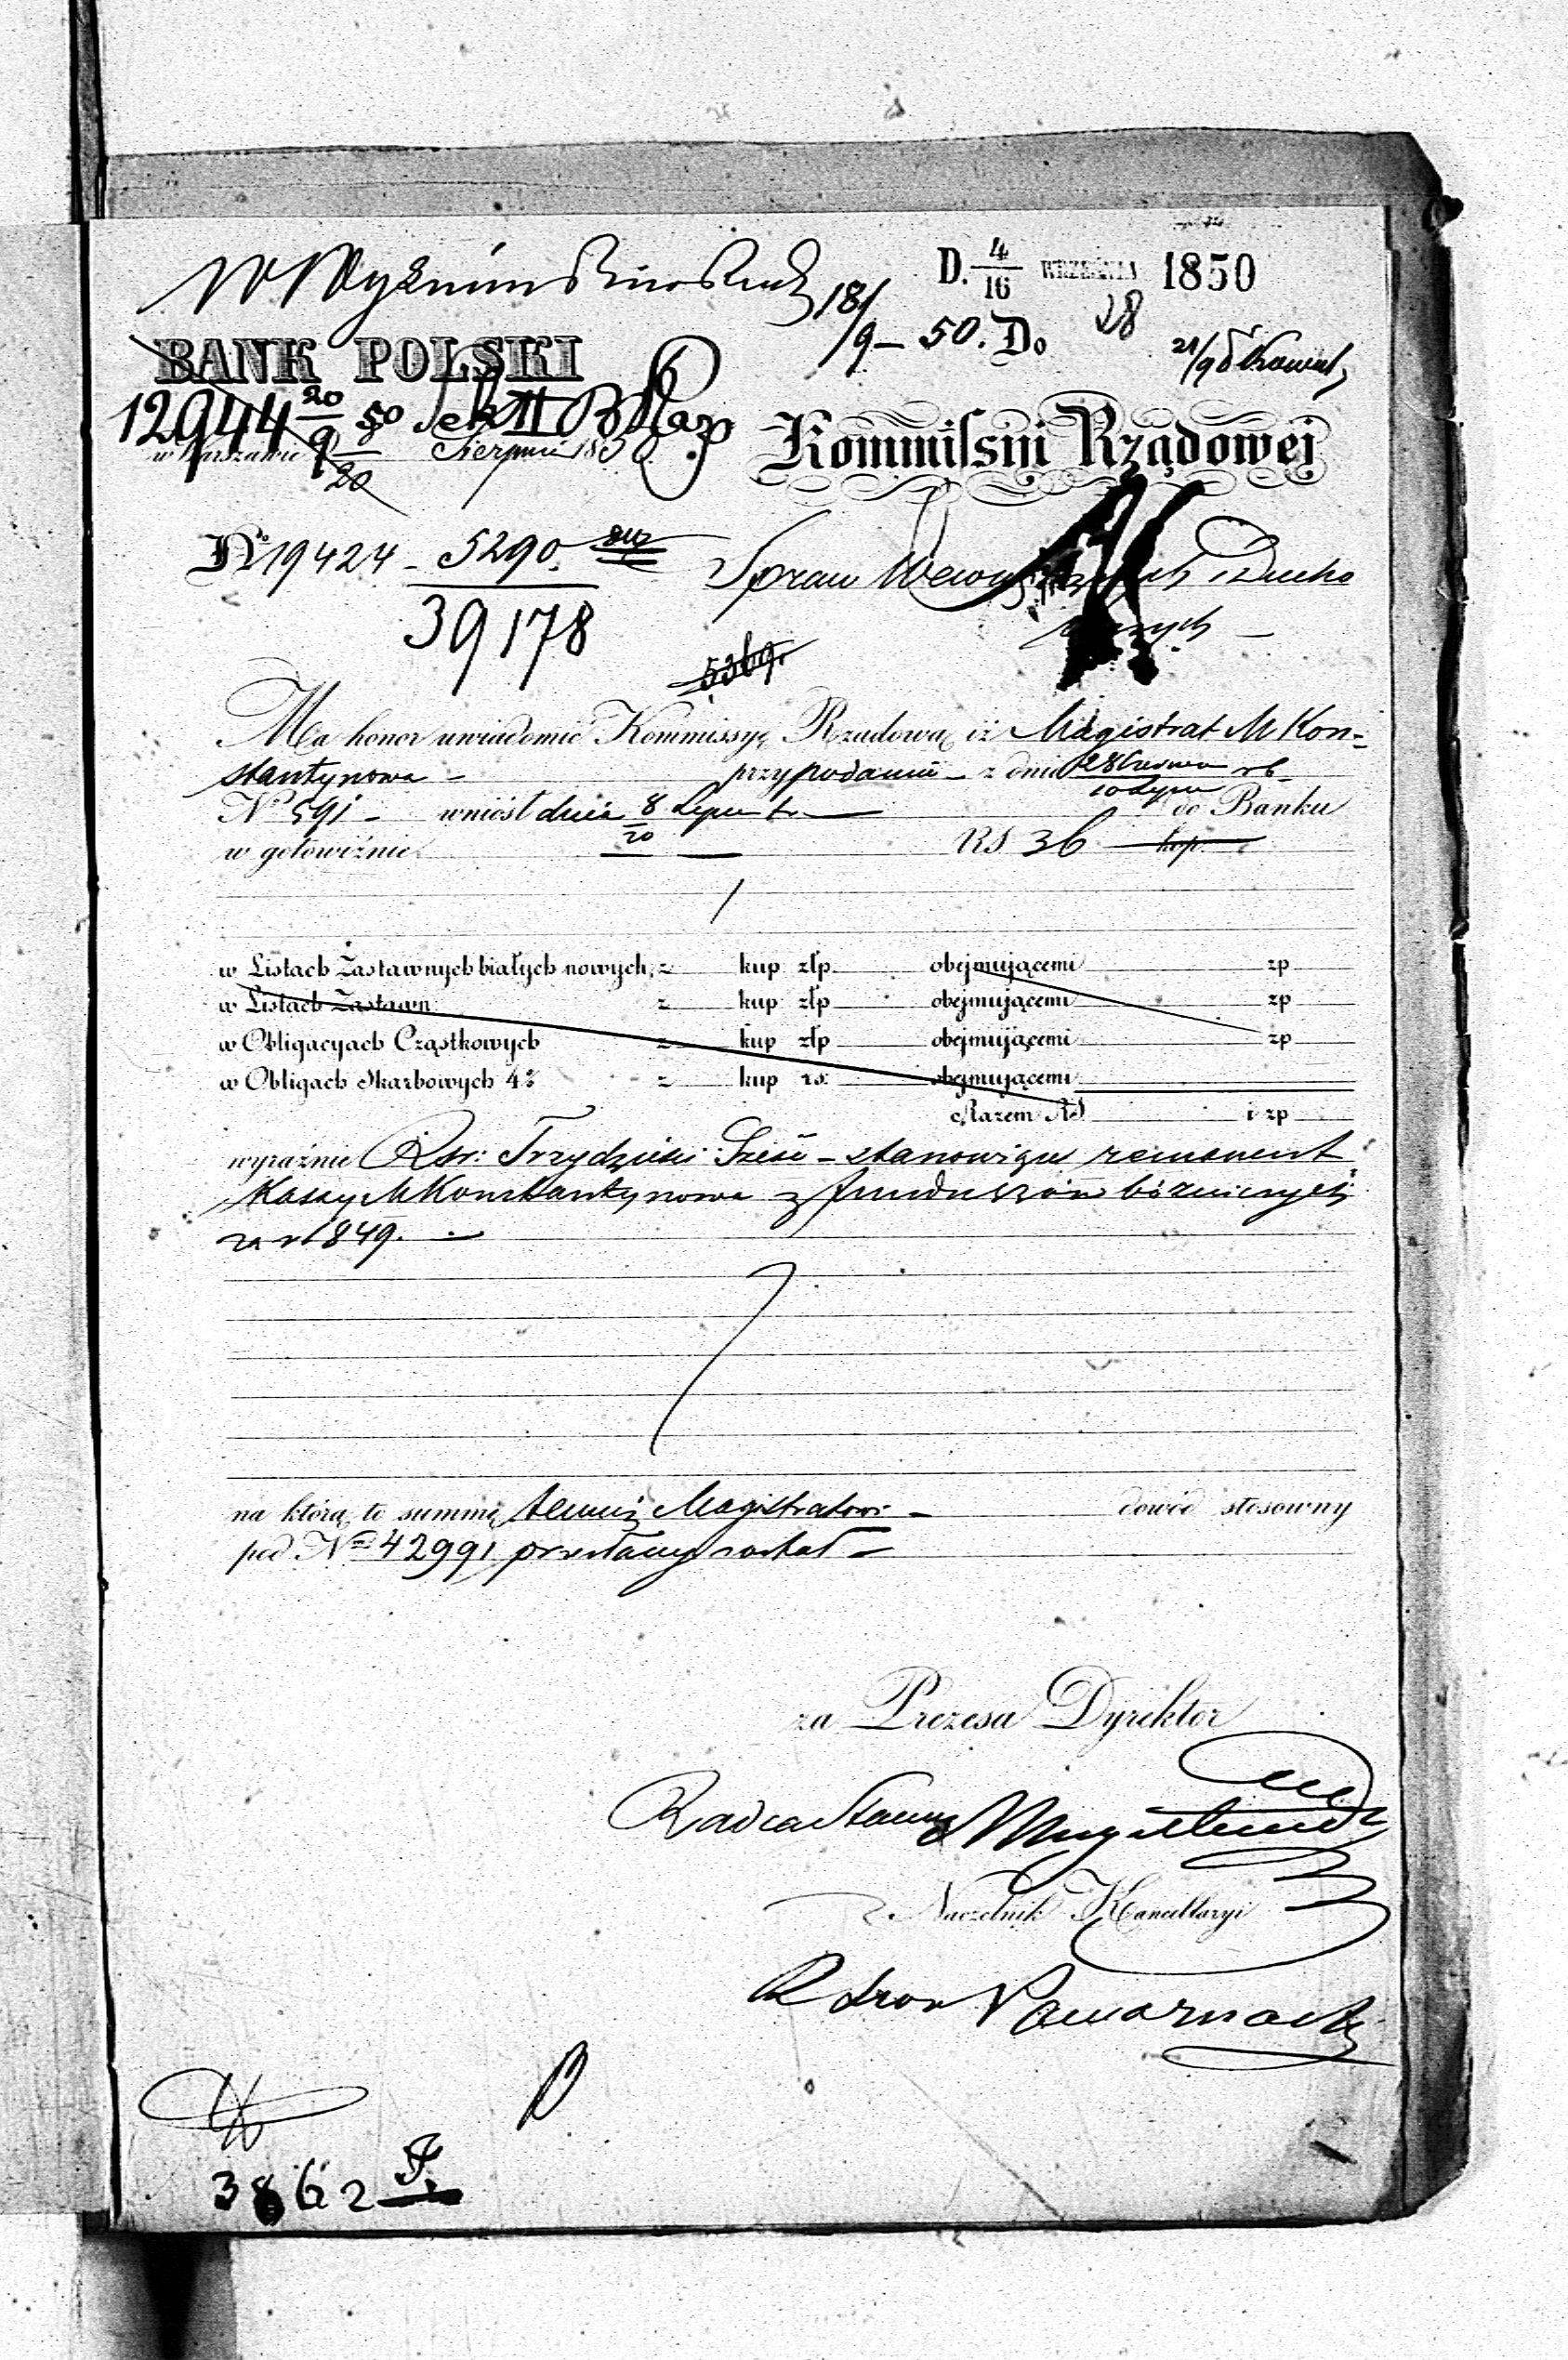 D. 4/16 WRZEŚNIA 1850
18/9 – 50. Do 28
BANK POLSKI
12944 20/9 50
Kommissyi Rządowej
w Warszawie 8/20 Sierpnia 1850
No 19424 – 5290.
39178
Spraw Wewnętrznych i Ducho
wnych –
5369.
Ma honor uwiadomić Kommissyę Rządową iż Magistrat M Kon-
stantynowa – przy podaniu – z dnia 28 Czerwca rb
10 Lipca
No 591 – wniósł dnia 8/20 Lipca do Banku
w gotowiźnie RS 36 kop
w Listach Zastawnych białych nowych, z kup złp. obejmującemi zp
w Listach Zastawn: z kup złp obejmującemi zp
w Obligacyach Cząstkowych z kup złp obejmującemi zp
w Obligach Skarbowych 4% z kup rs: obejmującemi
Razem RS i zp
wyraźnie Rsr: Trzydzieści Sześć – stanowiące remanent
Kassy M Konstantynowa z funduszów bóżniczych
za r 1849. –
na którą to summę temuż Magistratowi – dowód stosowny
pod No 42991 przesłany został –
za Prezesa Dyrektor
Radca Stanu
Naczelnik Kancellaryi
3862